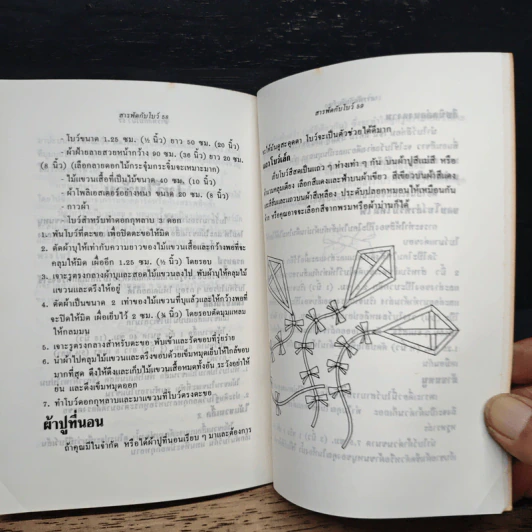 สารพัดกับโบว์ 58
- โบว์ขนาด 1.25 ซม. (½ นิ้ว) ยาว 50 ซม. (20 นิ้ว)
- ผ้าฝ้ายลายสวยหน้ากว้าง 90 ซม. (36 นิ้ว) ยาว 20 ซม.
(8 นิ้ว) (เลือกลายดอกไม้กระจุ๋มกระจิ๋มจะเหมาะมาก)
- ไม้แขวนเสื้อที่เป็นไม้ขนาด 40 ซม. (10 นิ้ว)
- ผ้าโพลีเอสเตอร์อย่างหนา ขนาด 20 ซม. (8 นิ้ว)
- กาวผ้า
- โบว์สำหรับทำดอกกุหลาบ 3 ดอก
1. พันโบว์ที่ตะขอ เพื่อปิดตะขอให้มิด
2. ตัดผ้าบุให้เท่ากับความยาวของไม้แขวนเสื้อและกว้างพอที่จะ
คลุมให้มิด เผื่ออีก 1.25 ซม. (½ นิ้ว) โดยรอบ
3. เจาะรูตรงกลางผ้าบุและสอดไม้แขวนลงไป พับผ้าบุให้คลุมไม้
แขวนและตรึงให้อยู่
4. ตัดผ้าเป็นขนาด 2 เท่าของไม้แขวนที่บุแล้วและให้กว้างพอที่
จะปิดให้มิด เผื่อเย็บไว้ 2 ซม. (¾ นิ้ว) โดยรอบตัดมุมแหลม
ให้กลมมน
5. เจาะรูตรงกลางสำหรับตะขอ พับเข้าและรัดขอบที่รุ่ยร่าย
6. นำผ้าไปคลุมไม้แขวนและตรึงขอบด้วยเข็มหมุดเย็บให้ใกล้ขอบ
มากที่สุด ดึงให้ตึงและเก็บไม้แขวนเสื้อหมดทั้งอัน ระวังอย่าให้
ย่น และดึงเข็มหมุดออก
7. ทำโบว์ดอกกุหลาบและมาแขวนที่โบว์ตรงตะขอ
ผ้าปูที่นอน
ถ้าคุณมีในจำกัด หรือได้ผ้าปูที่นอนเรียบ ๆ มาและต้องการ
สารพัดกับโบว์ 59
ให้ดูสะดุดตา โบว์จะเป็นตัวช่วยได้ดีมาก
โบว์เล็ก
โบว์สีสดเป็นแถว ๆ ห่างเท่า ๆ กัน บนผ้าปูสีแม่สี หรือ
คลุมเตียง เลือกสีแดงและฟ้าบนผ้าเขียว สีเขียวบนผ้าสีแดง
สีส้มและแดงบนผ้าสีเหลือง ประดับปลอกหมอนให้เหมือนกัน
หรือคุณอาจจะเลือกสีจากพรมหรือผ้าม่านก็ได้